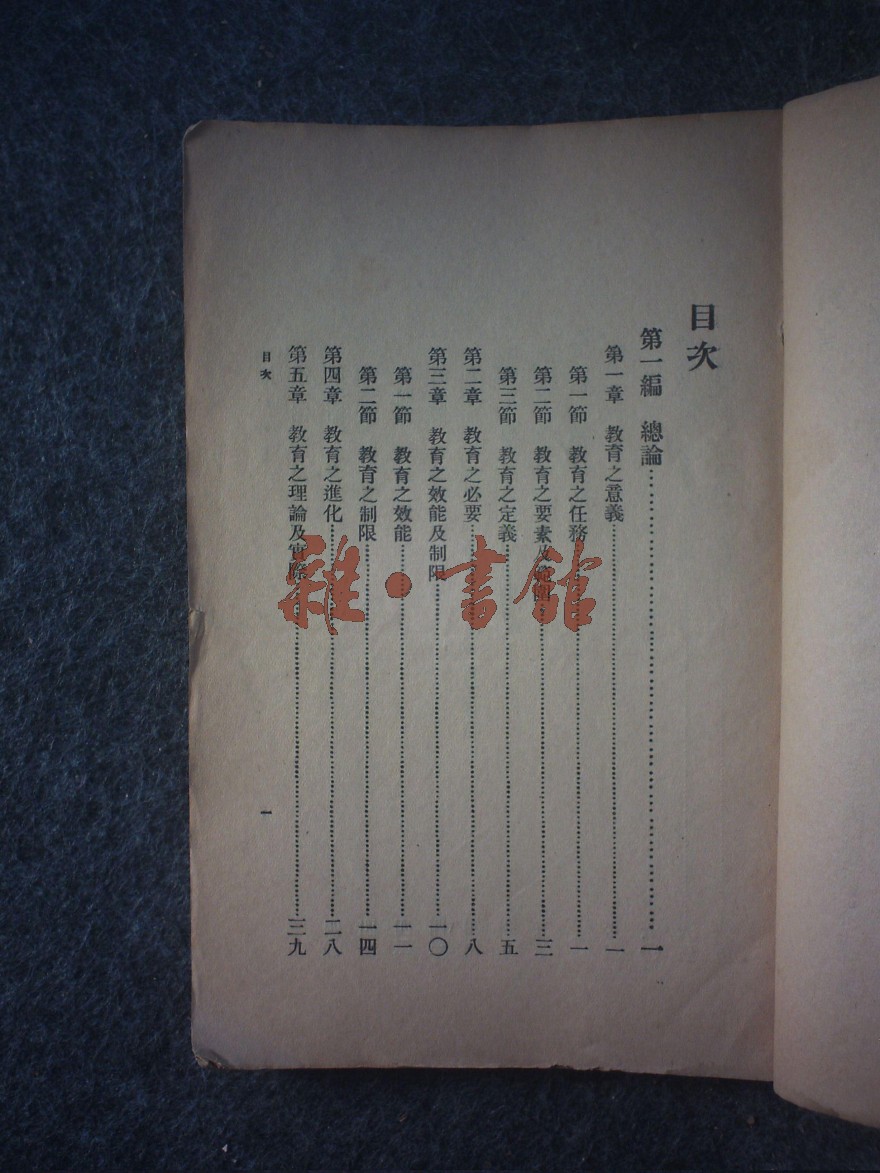 目次
第一編 總論 一
第一章 教育之意義 一
第一節 教育之任務 一
第二節 教育之要素及範圍 三
第三節 教育之定義 五
第二章 教育之必要 八
第三章 教育之效能及制限 一〇
第一節 教育之效能 一一
第二節 教育之制限 一四
第四章 教育之進化 二八
第五章 教育之理論及實際 三九
目次 一
雜·書館